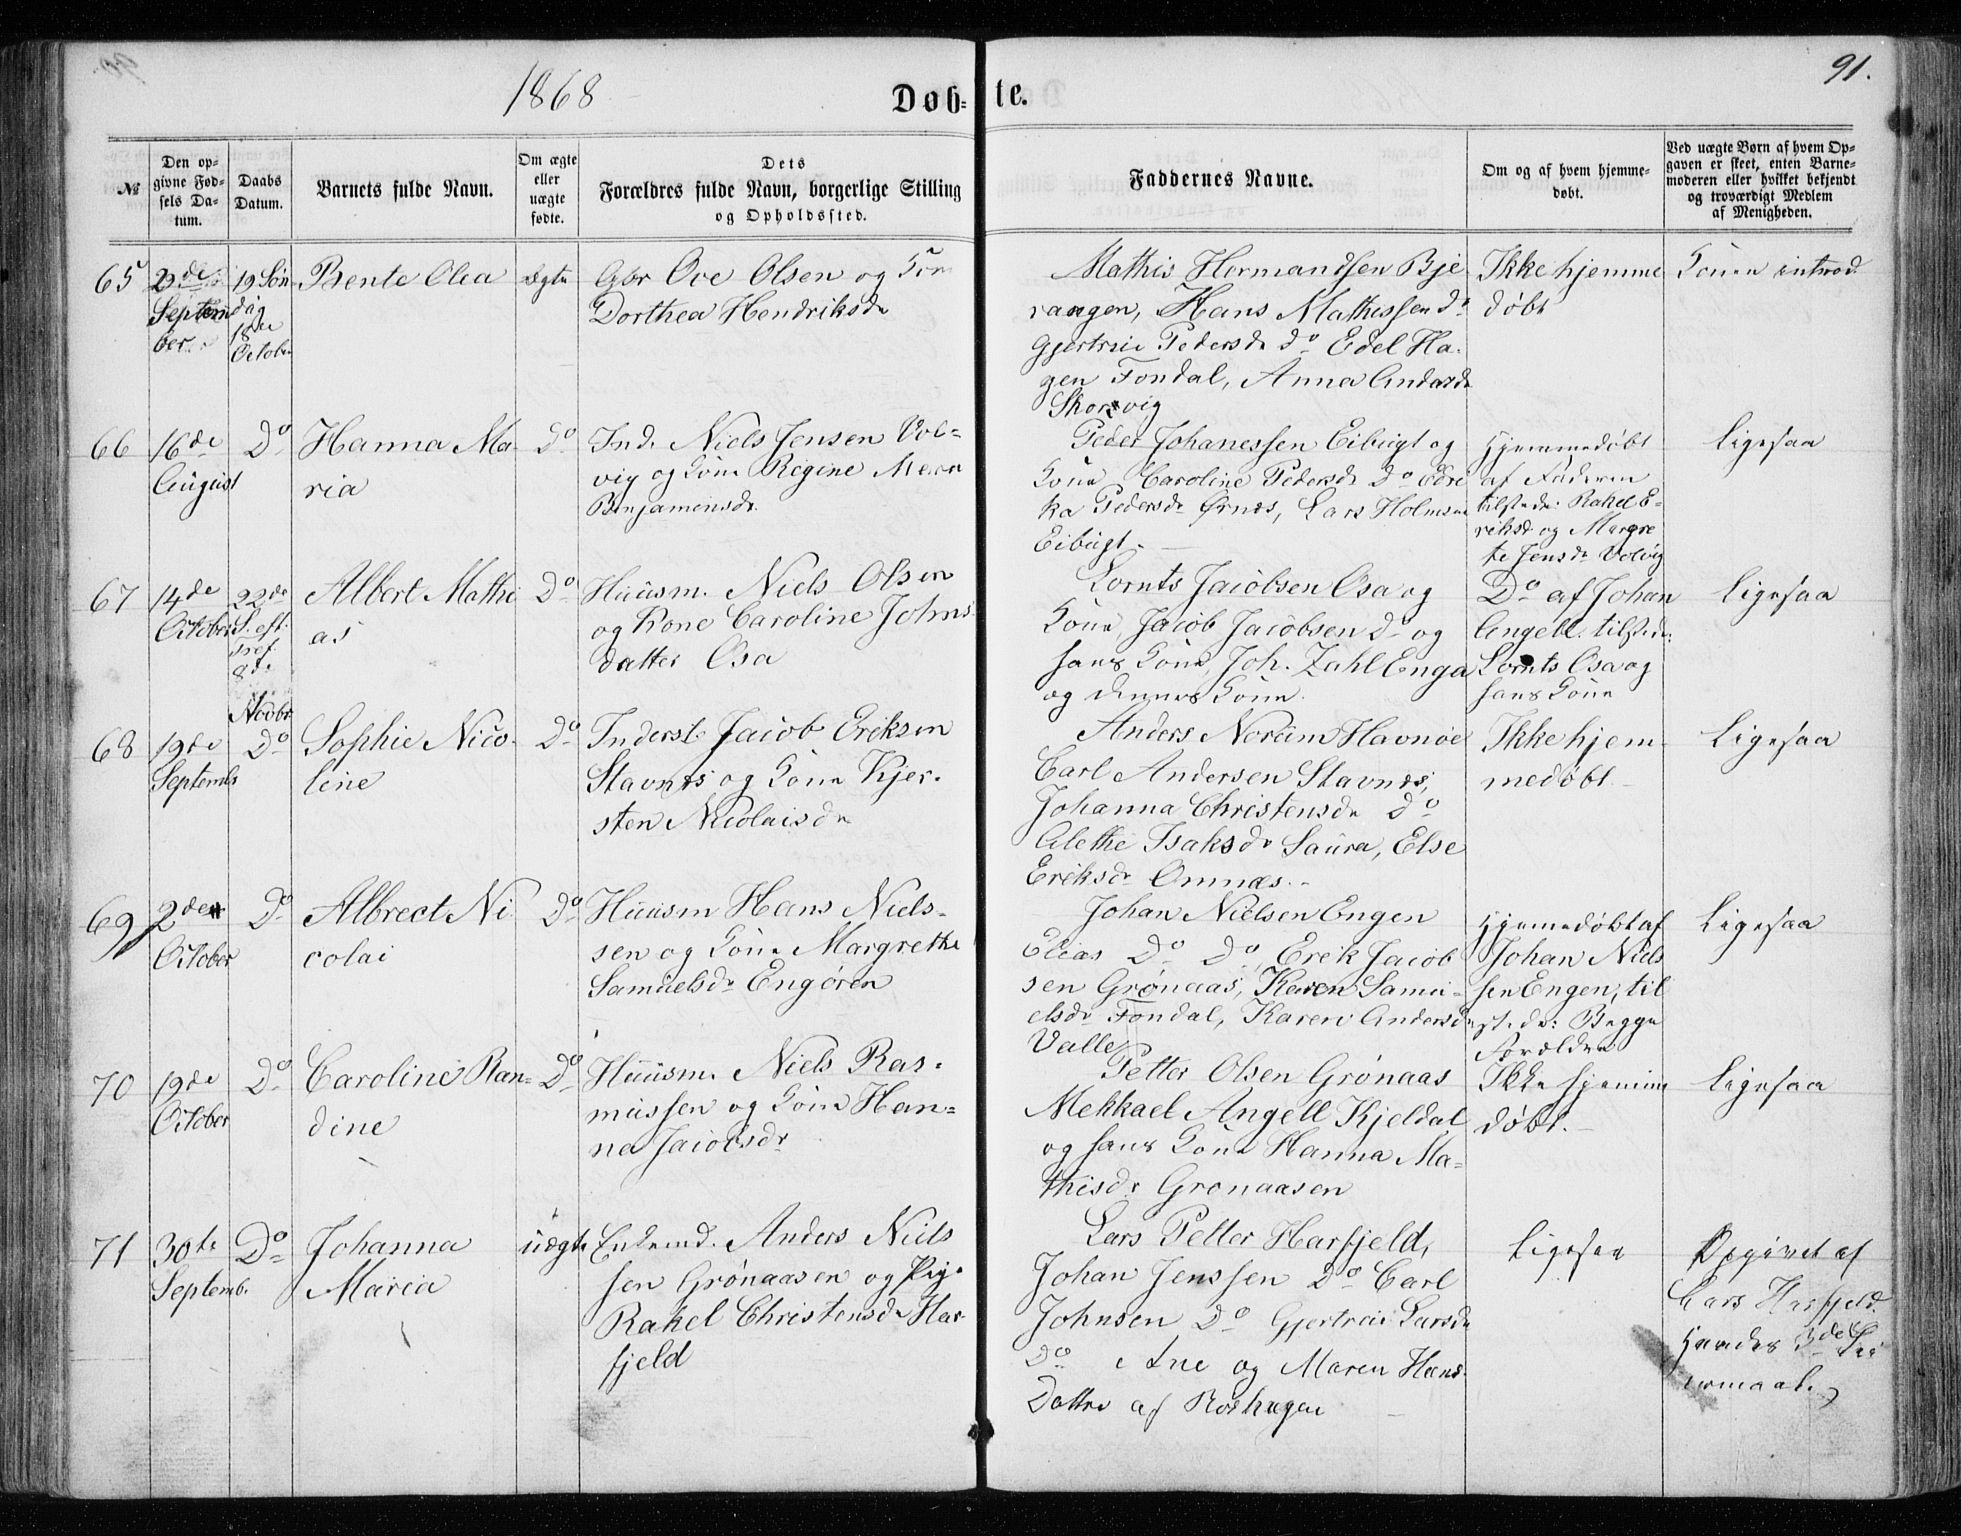 1868
Døb-te.
91.
№
Den op-
givne Fød-
sels Da-
tum.
Daabs
Datum.
Barnets fulde Navn.
Om ægte
eller
uægte
fødte.
Dets
Forældres fulde Navn, borgerlige Stilling
og Opholdssted.
Faddernes Navne.
Om og af hvem hjemme-
døbt.
Ved uægte Børn af hvem Op-
gaven er skeet, enten Barne-
moderen eller hvilket bekjendt
og troværdigt Medlem
af Menigheden.
65
2de
Septem
ber
19 Søn
dag
18de
October
Bente Olea
ægte
Gbr Ove Olsen og Kone
Dorthea Hendriksdr
Mathis Hermandsen Bje
rangen, Hans Mathissen do
Gjertrui Pedersdr do Edel Ha-
gen Fondal, Anna Andersdr
Skorvig
Ikke hjemme
døbt
Konen introd.
66
16de
August
Do
Hanna Ma-
ria
Do
Ind. Niels Jensen Vol-
vig og Kone Regine Meran
Benjaminsdr.
Peder Johanessen Eibugt og
Kone Caroline Pedersdr do Edri
ka Pedersdr Ørnes, Lars Holmsen
Eibugt.
Hjemmedøbt
af Faderen
tilstede: Rakel E-
riksd. og Margre
te Jensdr Volvig
Ligesaa
67
14de
October
22de
S. eft.
Tref.
8de
Novbr
Albert Mathi
as
Do
Huusm. Niels Olsen
og Kone Caroline Johns
datter Osa
Lornts Jacobsen Osa og
Kone, Jacob Jacobsen do og
hans Kone, Joh. Zahl Enga
og dennes Kone.
Do af Johan
Angell. tilsted:
Lornts Osa og
hans Kone
Ligesaa
68
19de
Septembr
Do
Sophie Nico-
line
Do
Inderst Jacob Eriksen
Stavnes og Kone Kjer-
sten Nicolaisdr
Anders Norum Havnøe
Carl Andersen Stavnes,
Johanna Christensdr do
Alethe Isaksdr Saura, Else
Eriksdr Omnæs.
Ikke hjem-
medøbt.
Ligesaa
69
2den
October
Do
Albrect Ni
colai
Do
Huusm Hans Niels-
sen og Kone Margrethe
Samuelsdr Engøren
Johan Nielsen Engen
Elias Do Do, Erik Jacob
sen Grønaas, Karen Samu-
elsdr Fondal, Karen Andersdr
Valle
Hjemmedøbt af
Johan Niels
sen Engen, til
stede: Begge
Forældre
Ligesaa
70
19de
October
Do
Caroline Ran-
dine
Do
Huusm. Niels Ras-
mussen og Kone Han-
na Jacobsdr
Petter Olsen Grønaas
Mekkael Angell Kjeldal
og hans Kone Hanna Ma-
thisdr Grønaasen
Ikke hjemme
døbt.
Ligesaa
71
30te
Septemb.
Do
Johanna
Maria
uægte
Enkemd. Anders Niels
sen Grønaasen og Pige
Rakel Christensdr Har
fjeld
Lars Petter Harfjeld,
Johan Jenssen Do Carl
Johnsen Do Gjertrui Larsdr
Do Ane og Maren Hans
Dattre af Roshagen
Ligesaa
Opgivet af
Lars Harfjeld.
Hendes 3de Lei
ermaal.